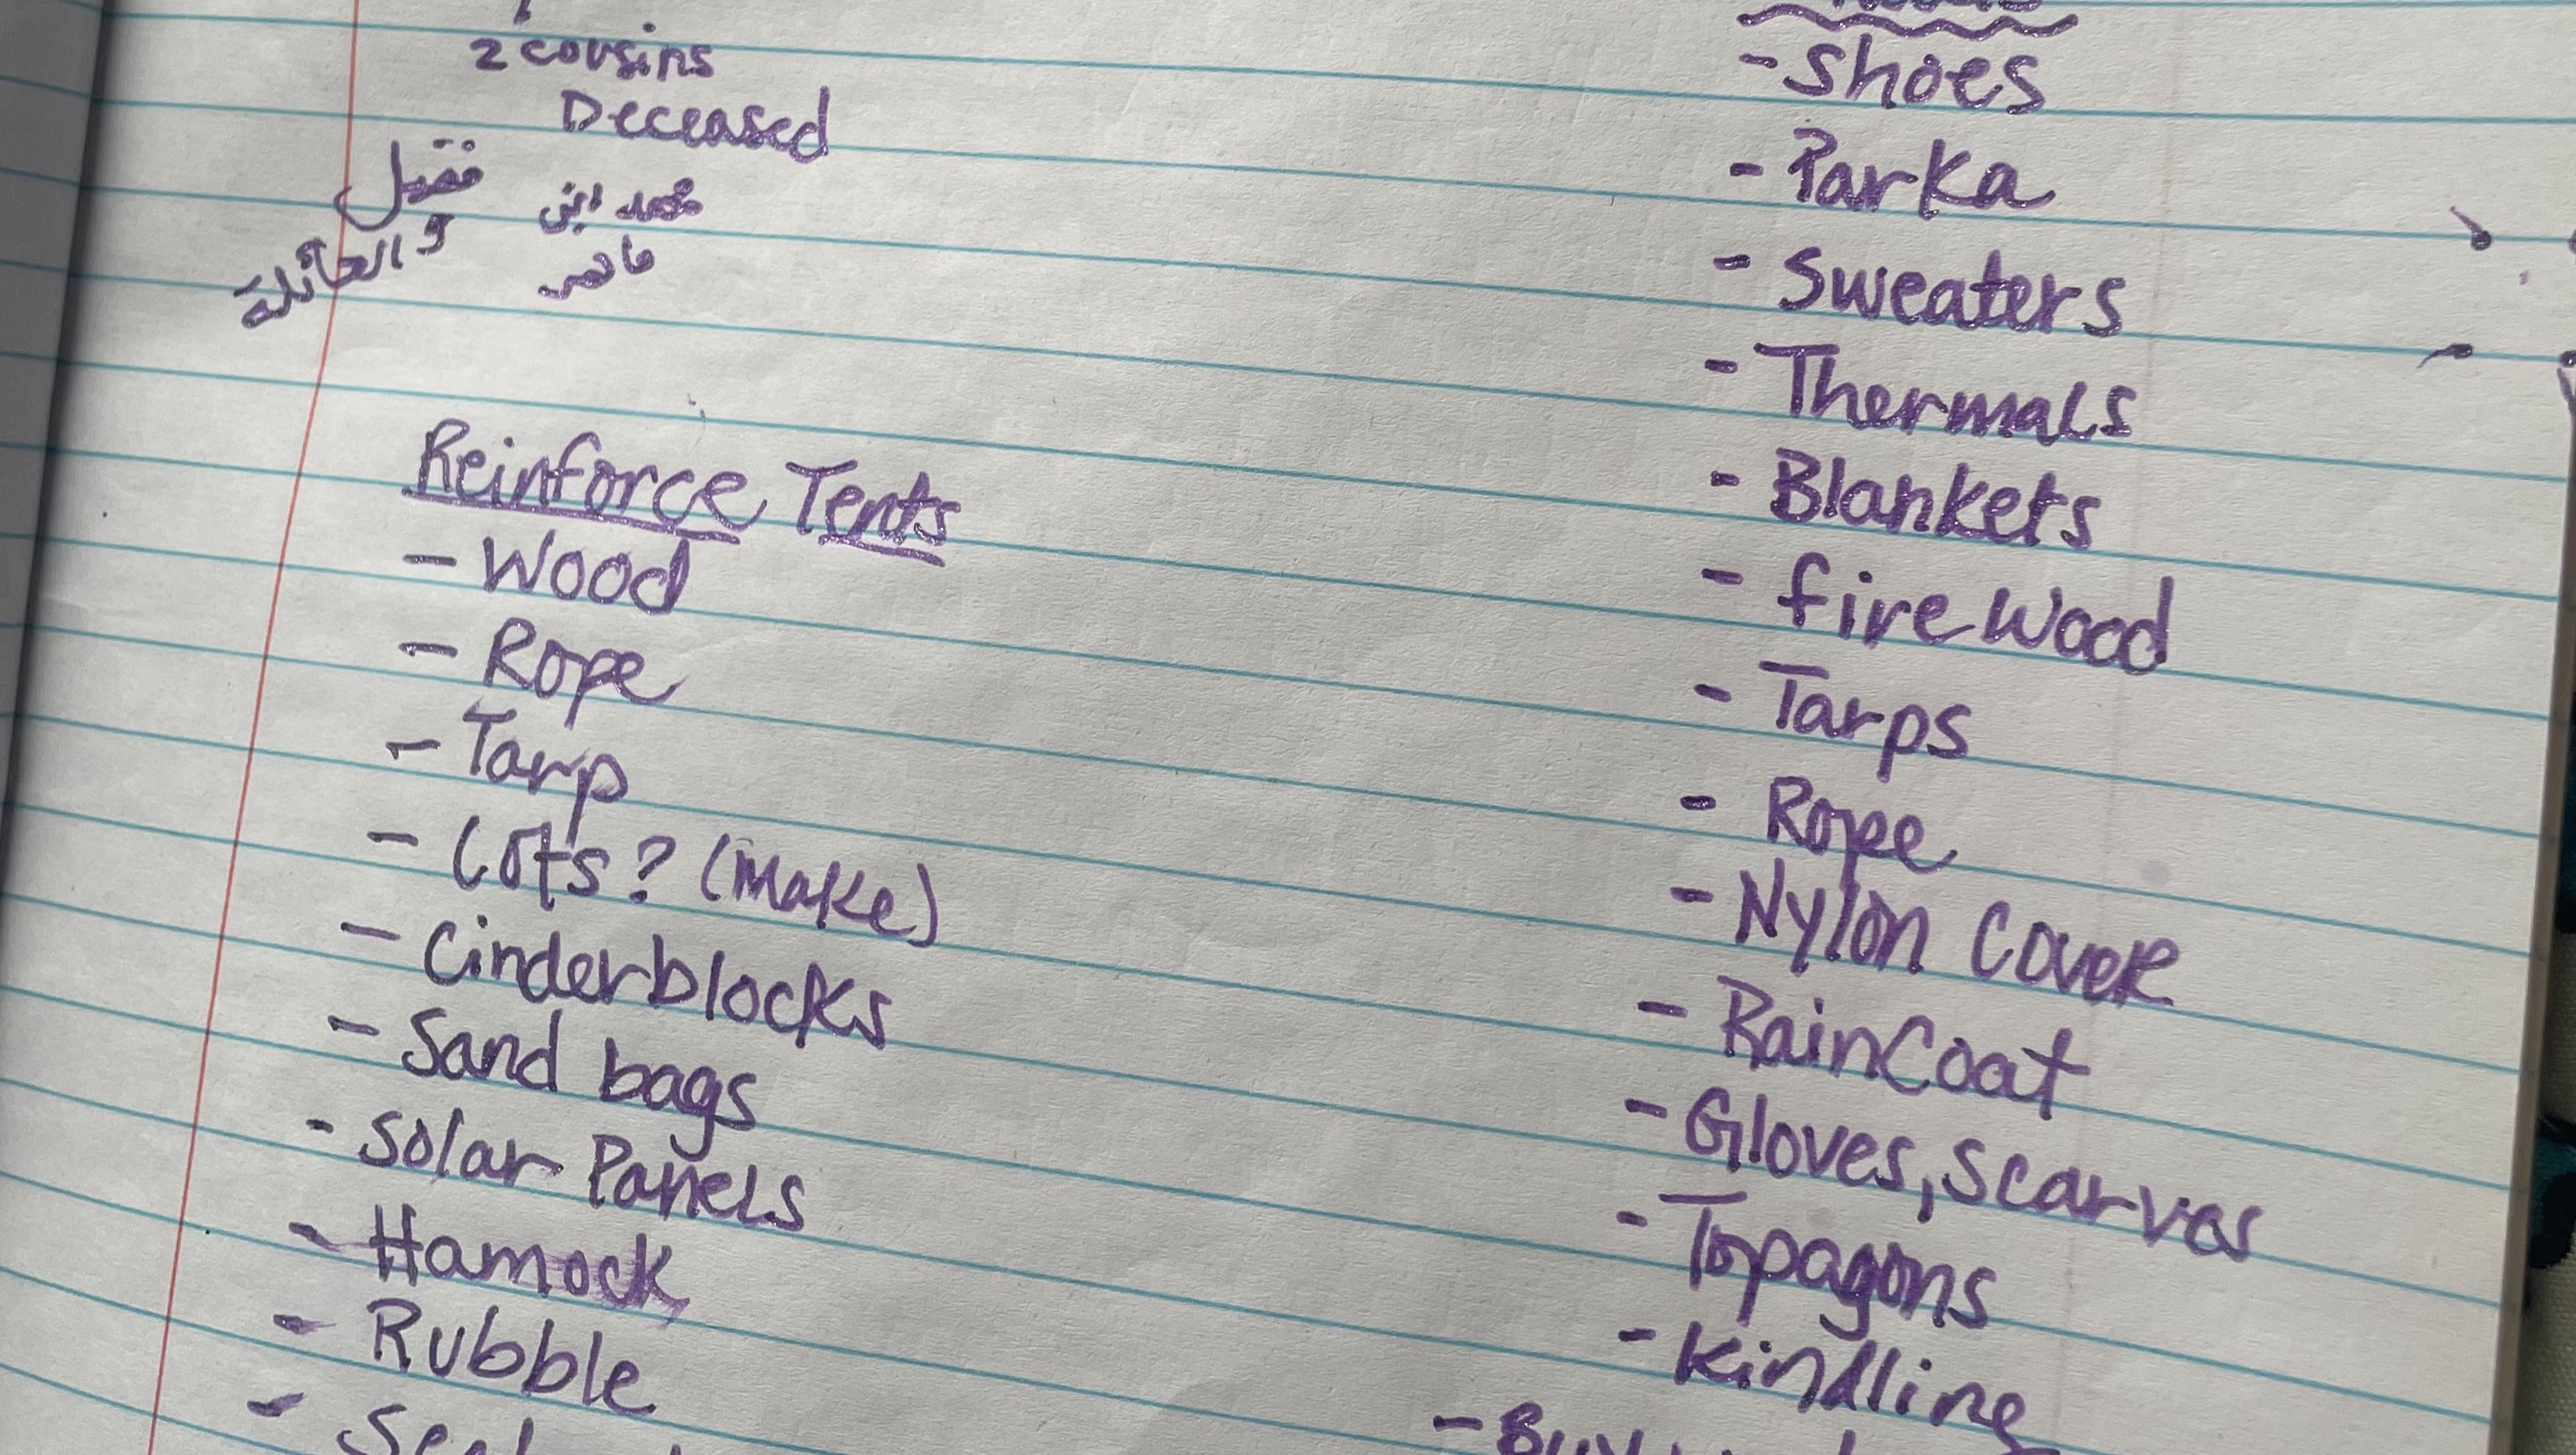 2 cousins
Deceased
محمد ابن
ماهر
و العائلة
Reinforce Tents
- Wood
- Rope
- Tarp
- Cots? (Make)
- Cinderblocks
- Sand bags
- Solar Panels
- Hamock
- Rubble
-
- Shoes
- Parka
- Sweaters
- Thermals
- Blankets
- fire Wood
- Tarps
- Rope
- Nylon Cover
- RainCoat
- Gloves, Scarves
- Topagons
- Kindling
-